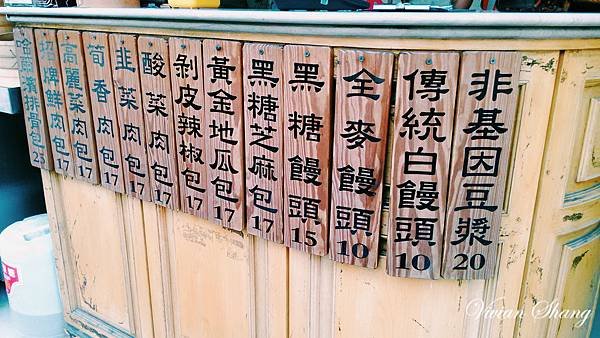 非基因豆漿20
傳統白饅頭10
全麥饅頭10
黑糖饅頭15
黑糖芝麻包17
黃金地瓜包17
剝皮辣椒包17
酸菜肉包17
韭菜肉包17
筍香肉包17
高麗菜肉包17
招牌鮮肉包17
哈爾濱排骨包25
Vivian Shang